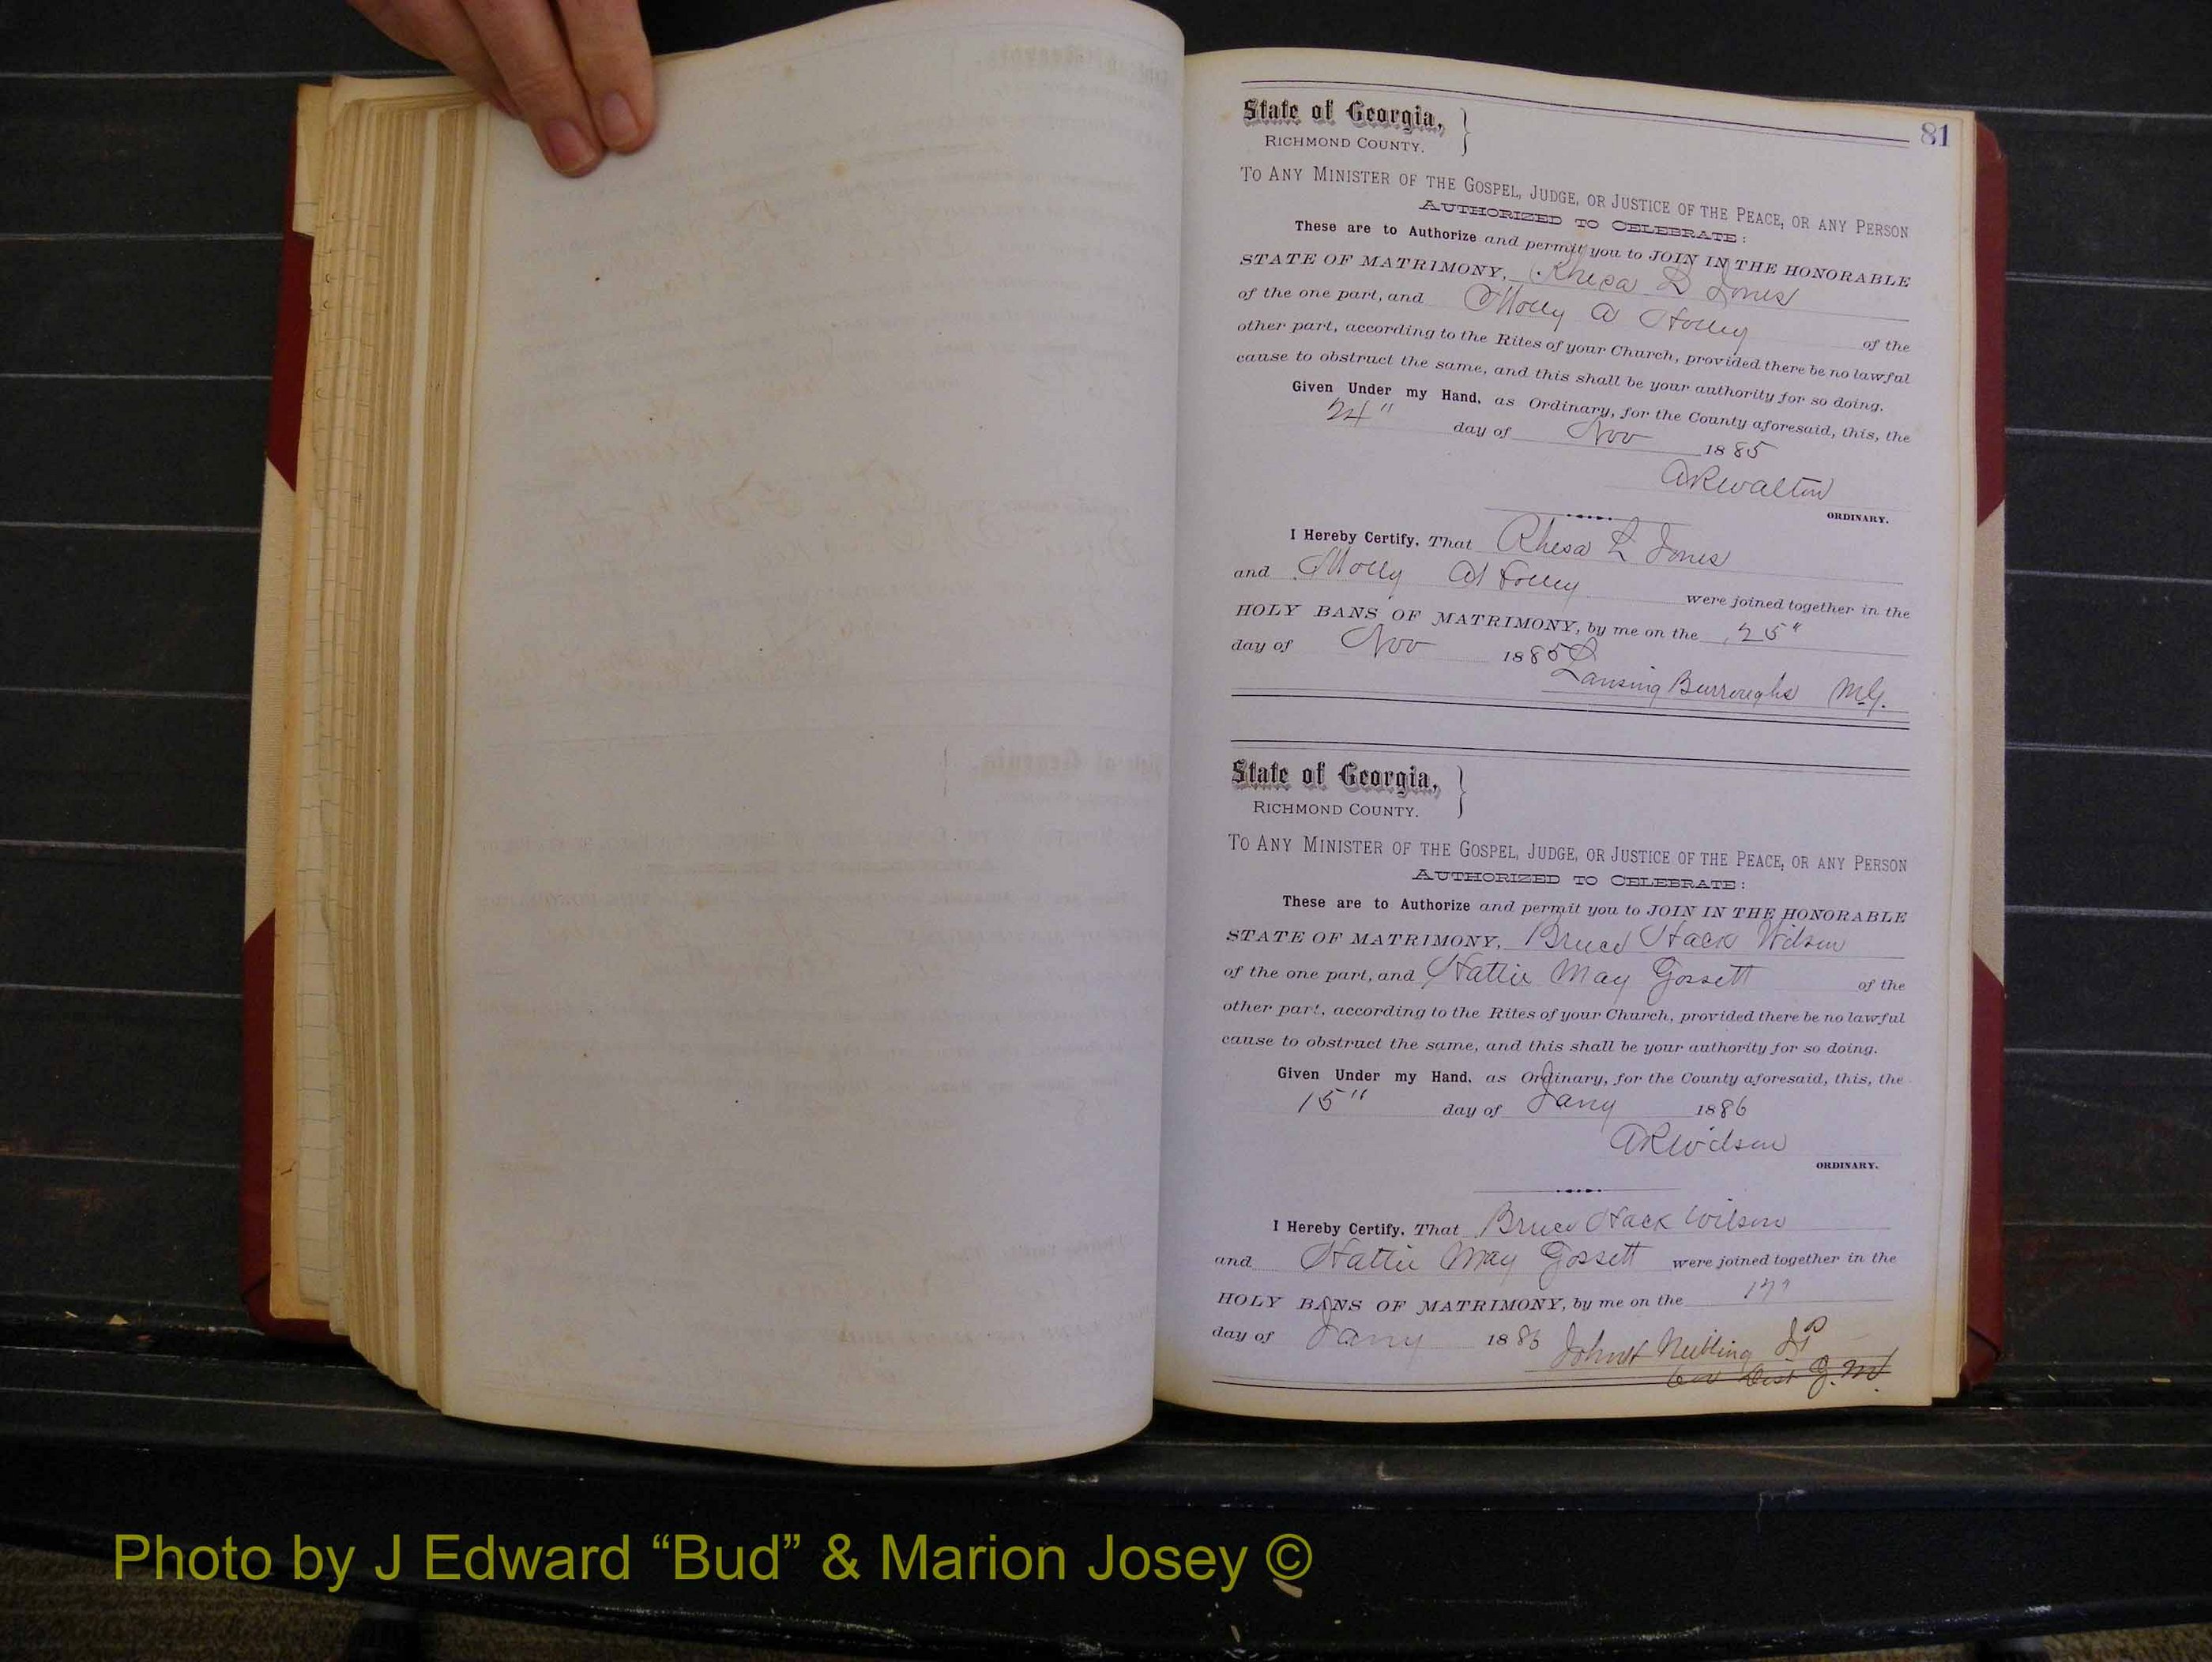 81
State of Georgia, }
RICHMOND COUNTY.
TO ANY MINISTER OF THE GOSPEL, JUDGE, OR JUSTICE OF THE PEACE, OR ANY PERSON
AUTHORIZED TO CELEBRATE:
These are to Authorize and permit you to JOIN IN THE HONORABLE
STATE OF MATRIMONY, Rhesa L Jones
of the one part, and Molly A Holley of the
other part, according to the Rites of your Church, provided there be no lawful
cause to obstruct the same, and this shall be your authority for so doing.
Given Under my Hand, as Ordinary, for the County aforesaid, this, the
24" day of Nov 1885
ARWalton
ORDINARY.
I Hereby Certify, That Rhesa L Jones
and Molly A Holley were joined together in the
HOLY BANS OF MATRIMONY, by me on the 25"
day of Nov 1885
Lansing Burroughs M.G.
State of Georgia, }
RICHMOND COUNTY.
TO ANY MINISTER OF THE GOSPEL, JUDGE, OR JUSTICE OF THE PEACE, OR ANY PERSON
AUTHORIZED TO CELEBRATE:
These are to Authorize and permit you to JOIN IN THE HONORABLE
STATE OF MATRIMONY, Bruce Hack Wilson
of the one part, and Hattie May Gossett of the
other part, according to the Rites of your Church, provided there be no lawful
cause to obstruct the same, and this shall be your authority for so doing.
Given Under my Hand, as Ordinary, for the County aforesaid, this, the
15" day of Jany 1886
ARWilson
ORDINARY.
I Hereby Certify, That Bruce Hack Wilson
and Hattie May Gossett were joined together in the
HOLY BANS OF MATRIMONY, by me on the 17"
day of Jany 1886 John H Neibling JP
Dist G.M.
Photo by J Edward “Bud” & Marion Josey ©